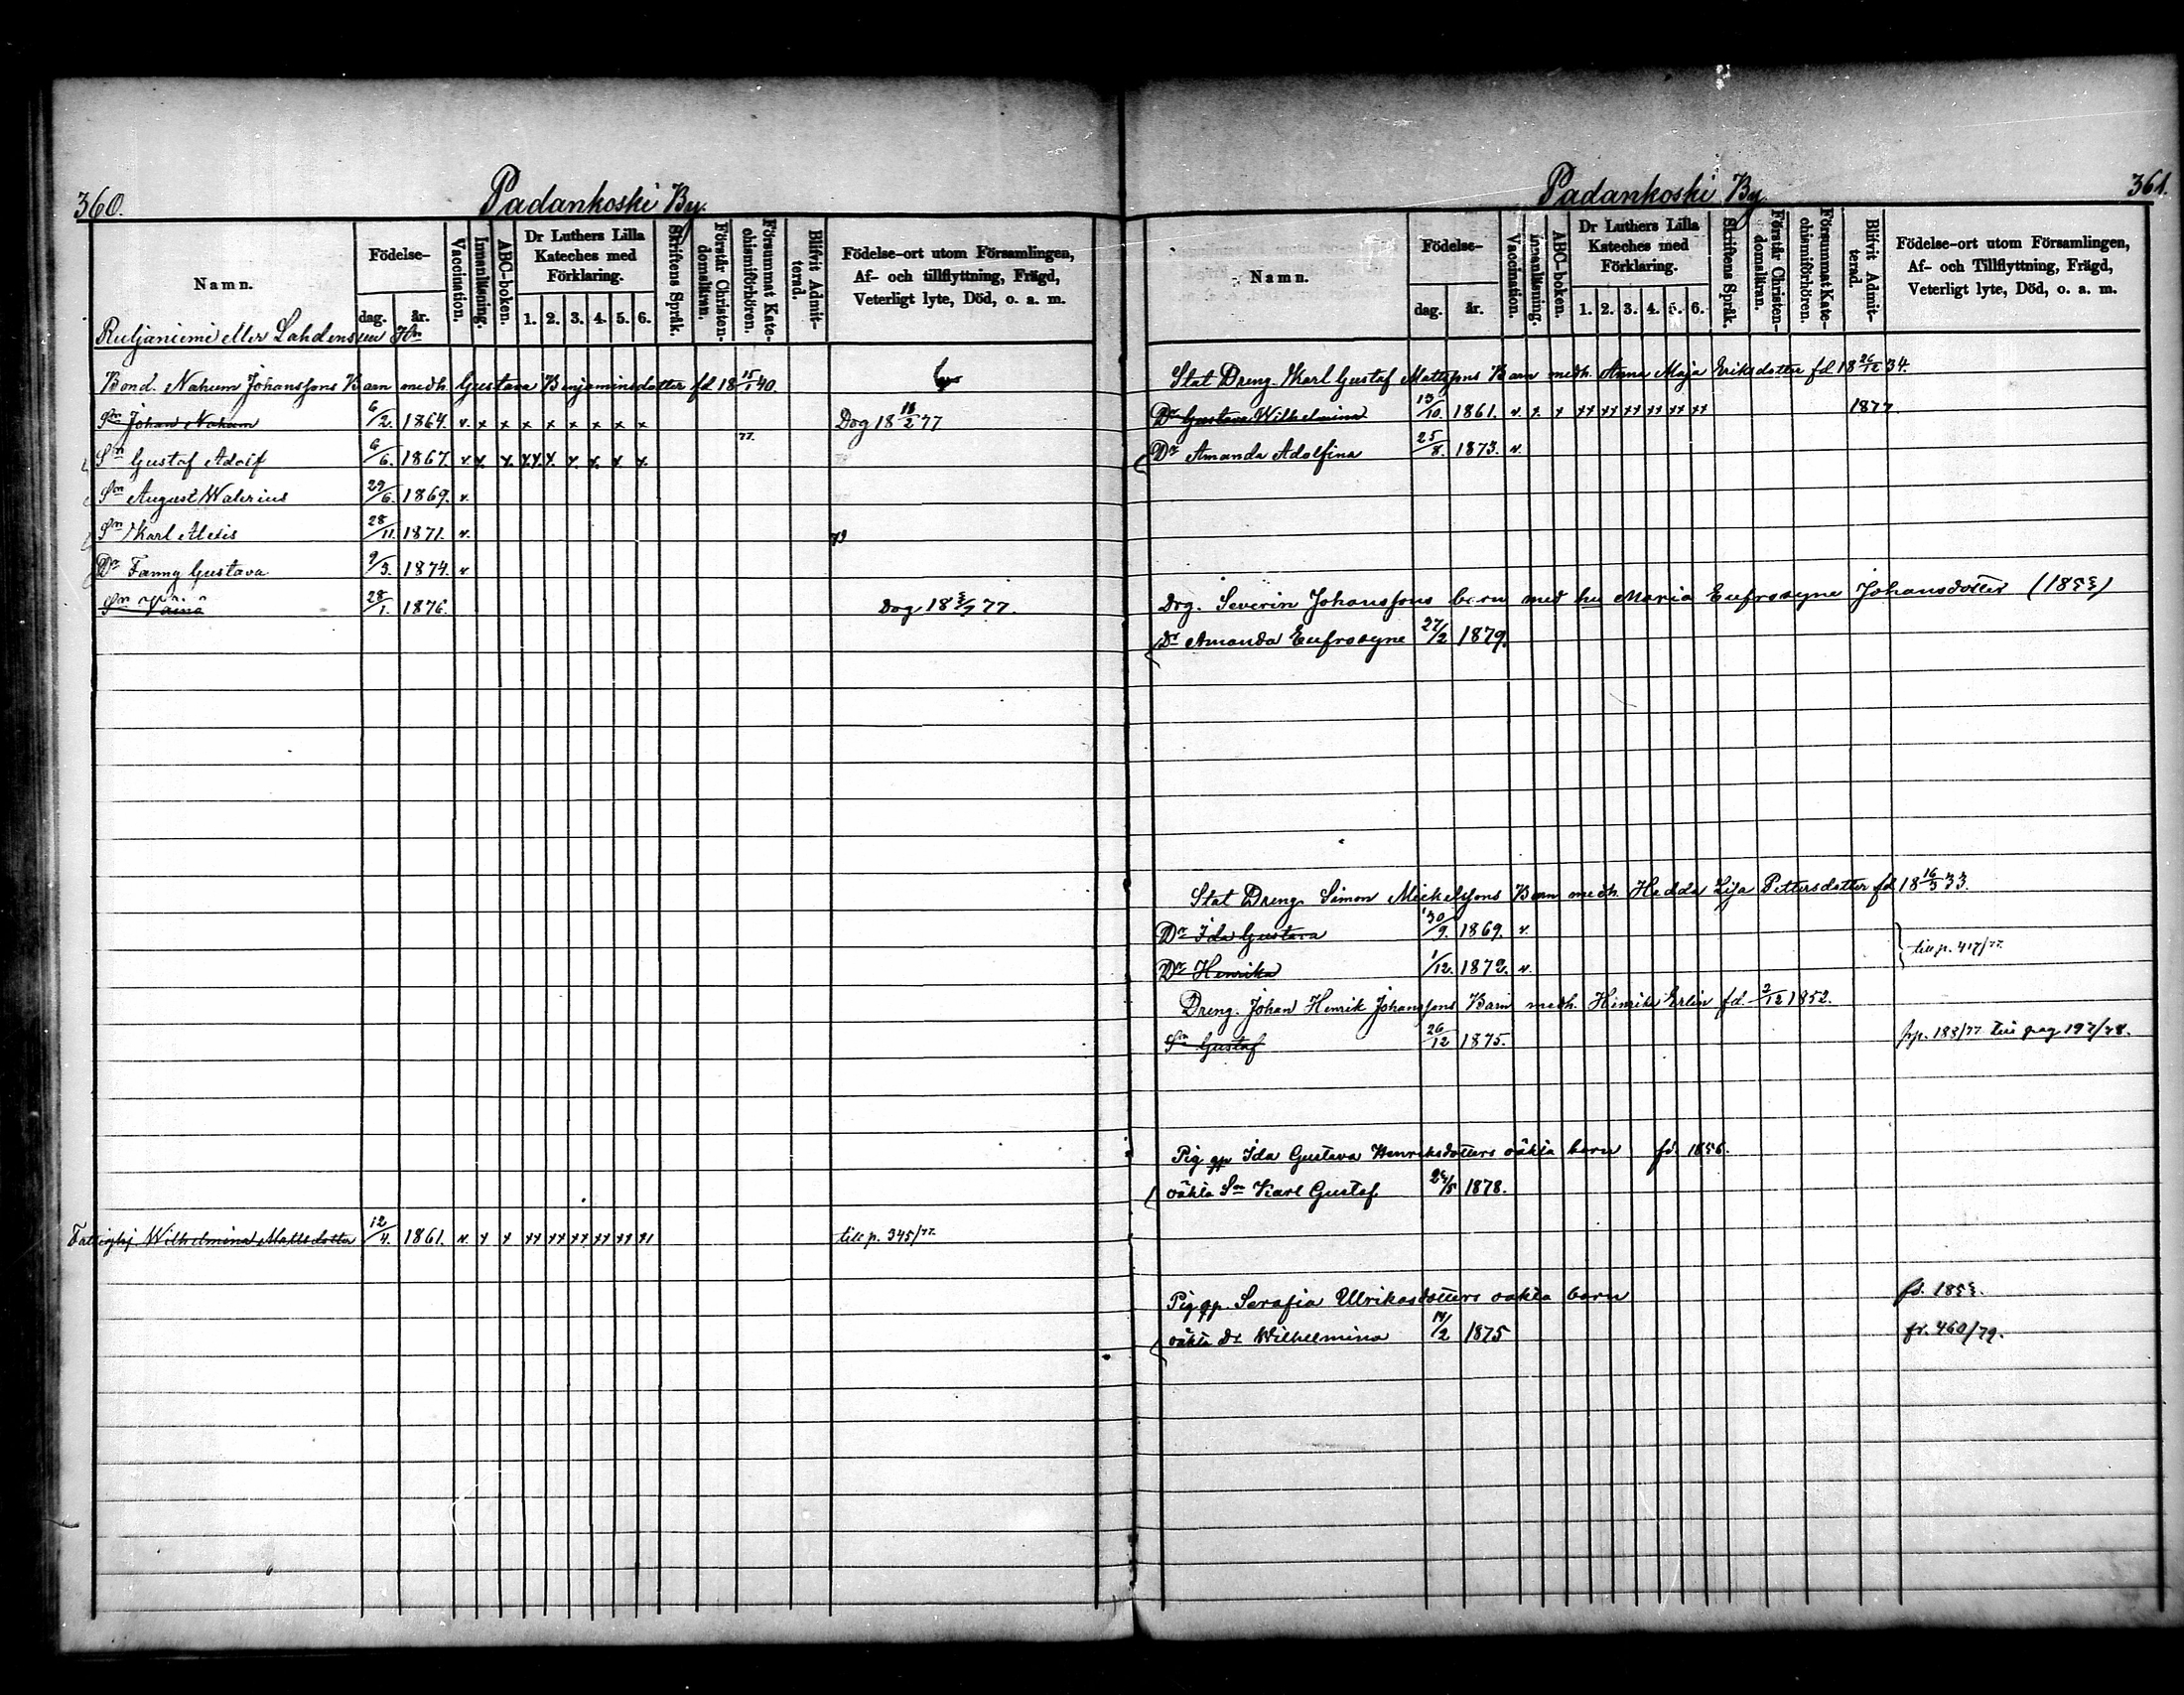 360.
Padankoski By.
Namn.
Födelse-
dag. år.
Vaccination.
Innanläsning.
ABC-boken.
Dr Luthers Lilla Kateches med Förklaring.
1. 2. 3. 4. 5. 6.
Skriftens Språk.
Förstår Christen-domsläran.
Försummat Kate-chismiförhören.
Blifvit Admit-terad.
Födelse-ort utom Församlingen,
Af- och tillflyttning, Frägd,
Veterligt lyte, Död, o. a. m.
eller Lahdensuu
Bond. Nahum Johanssons Barn medh. Gustava Benjaminsdotter fd 18 15/1 40.
Sn Johan Nahum 6/2. 1864. v. x x x x x x x x Dog 18 18/2 77
77.
Sn Gustaf Adolf 6/6. 1867. v. x. x. x.x. x. x. x. x. x.
Sn August Walerius 29/6. 1869. v.
Sn Karl Alexis 28/11. 1871. v.
79
Dr Fanny Gustava 9/3. 1874. v.
Sn Väinö 28/1. 1876. Dog 18 77.
Wilhelmina Mattsdotter 12/4. 1861. v. x x xx xx xx xx xx x1 till p. 345/77.
361.
Padankoski By
Namn.
Födelse-
dag. år.
Vaccination.
Innanläsning.
ABC-boken.
Dr Luthers Lilla Kateches med Förklaring.
1. 2. 3. 4. 5. 6.
Skriftens Språk.
Förstår Christen-domsläran.
Försummat Kate-chismiförhören.
Blifvit Admit-terad.
Födelse-ort utom Församlingen,
Af- och Tillflyttning, Frägd,
Veterligt lyte, Död, o. a. m.
Stat Dreng. Karl Gustaf Mattssons Barn medh. Anna Maja Eriksdotter fd 18 26/12 34.
Dr Gustava Wilhelmina 13/10. 1861. v. x. x xx xx xx xx xx xx 1877.
Dr Amanda Adolfina 25/8. 1873. v.
Drg. Severin Johanssons barn med hu Maria Eufrosyne Johansdotter (1855)
Dr Amanda Eufrosyne 27/2 1879.
Stat Dreng. Simon Mickelssons Barn medh. Hedda Lisa Pettersdotter fd 18 16/3 33.
Dr Ida Gustava 30/9. 1869. v.
till p. 417/77
Dr Henrika 1/12. 1872. v.
Dreng. Johan Henrik Johanssons Barn medh. Henrika Erlin fd 2/12 1852.
Sn Gustaf 26/12 1875. fr p. 188/77 till pag 197/78.
Pig. gp. Ida Gustava Henriksdotters oäkta barn fd. 1856.
oäkta Sn Karl Gustaf 24/5 1878.
Pig. gp. Serafia Ulrikasdotters oäkta barn fd. 1855.
oäkta Dr Wilhelmina 14/2 1875 fr. 460/79.